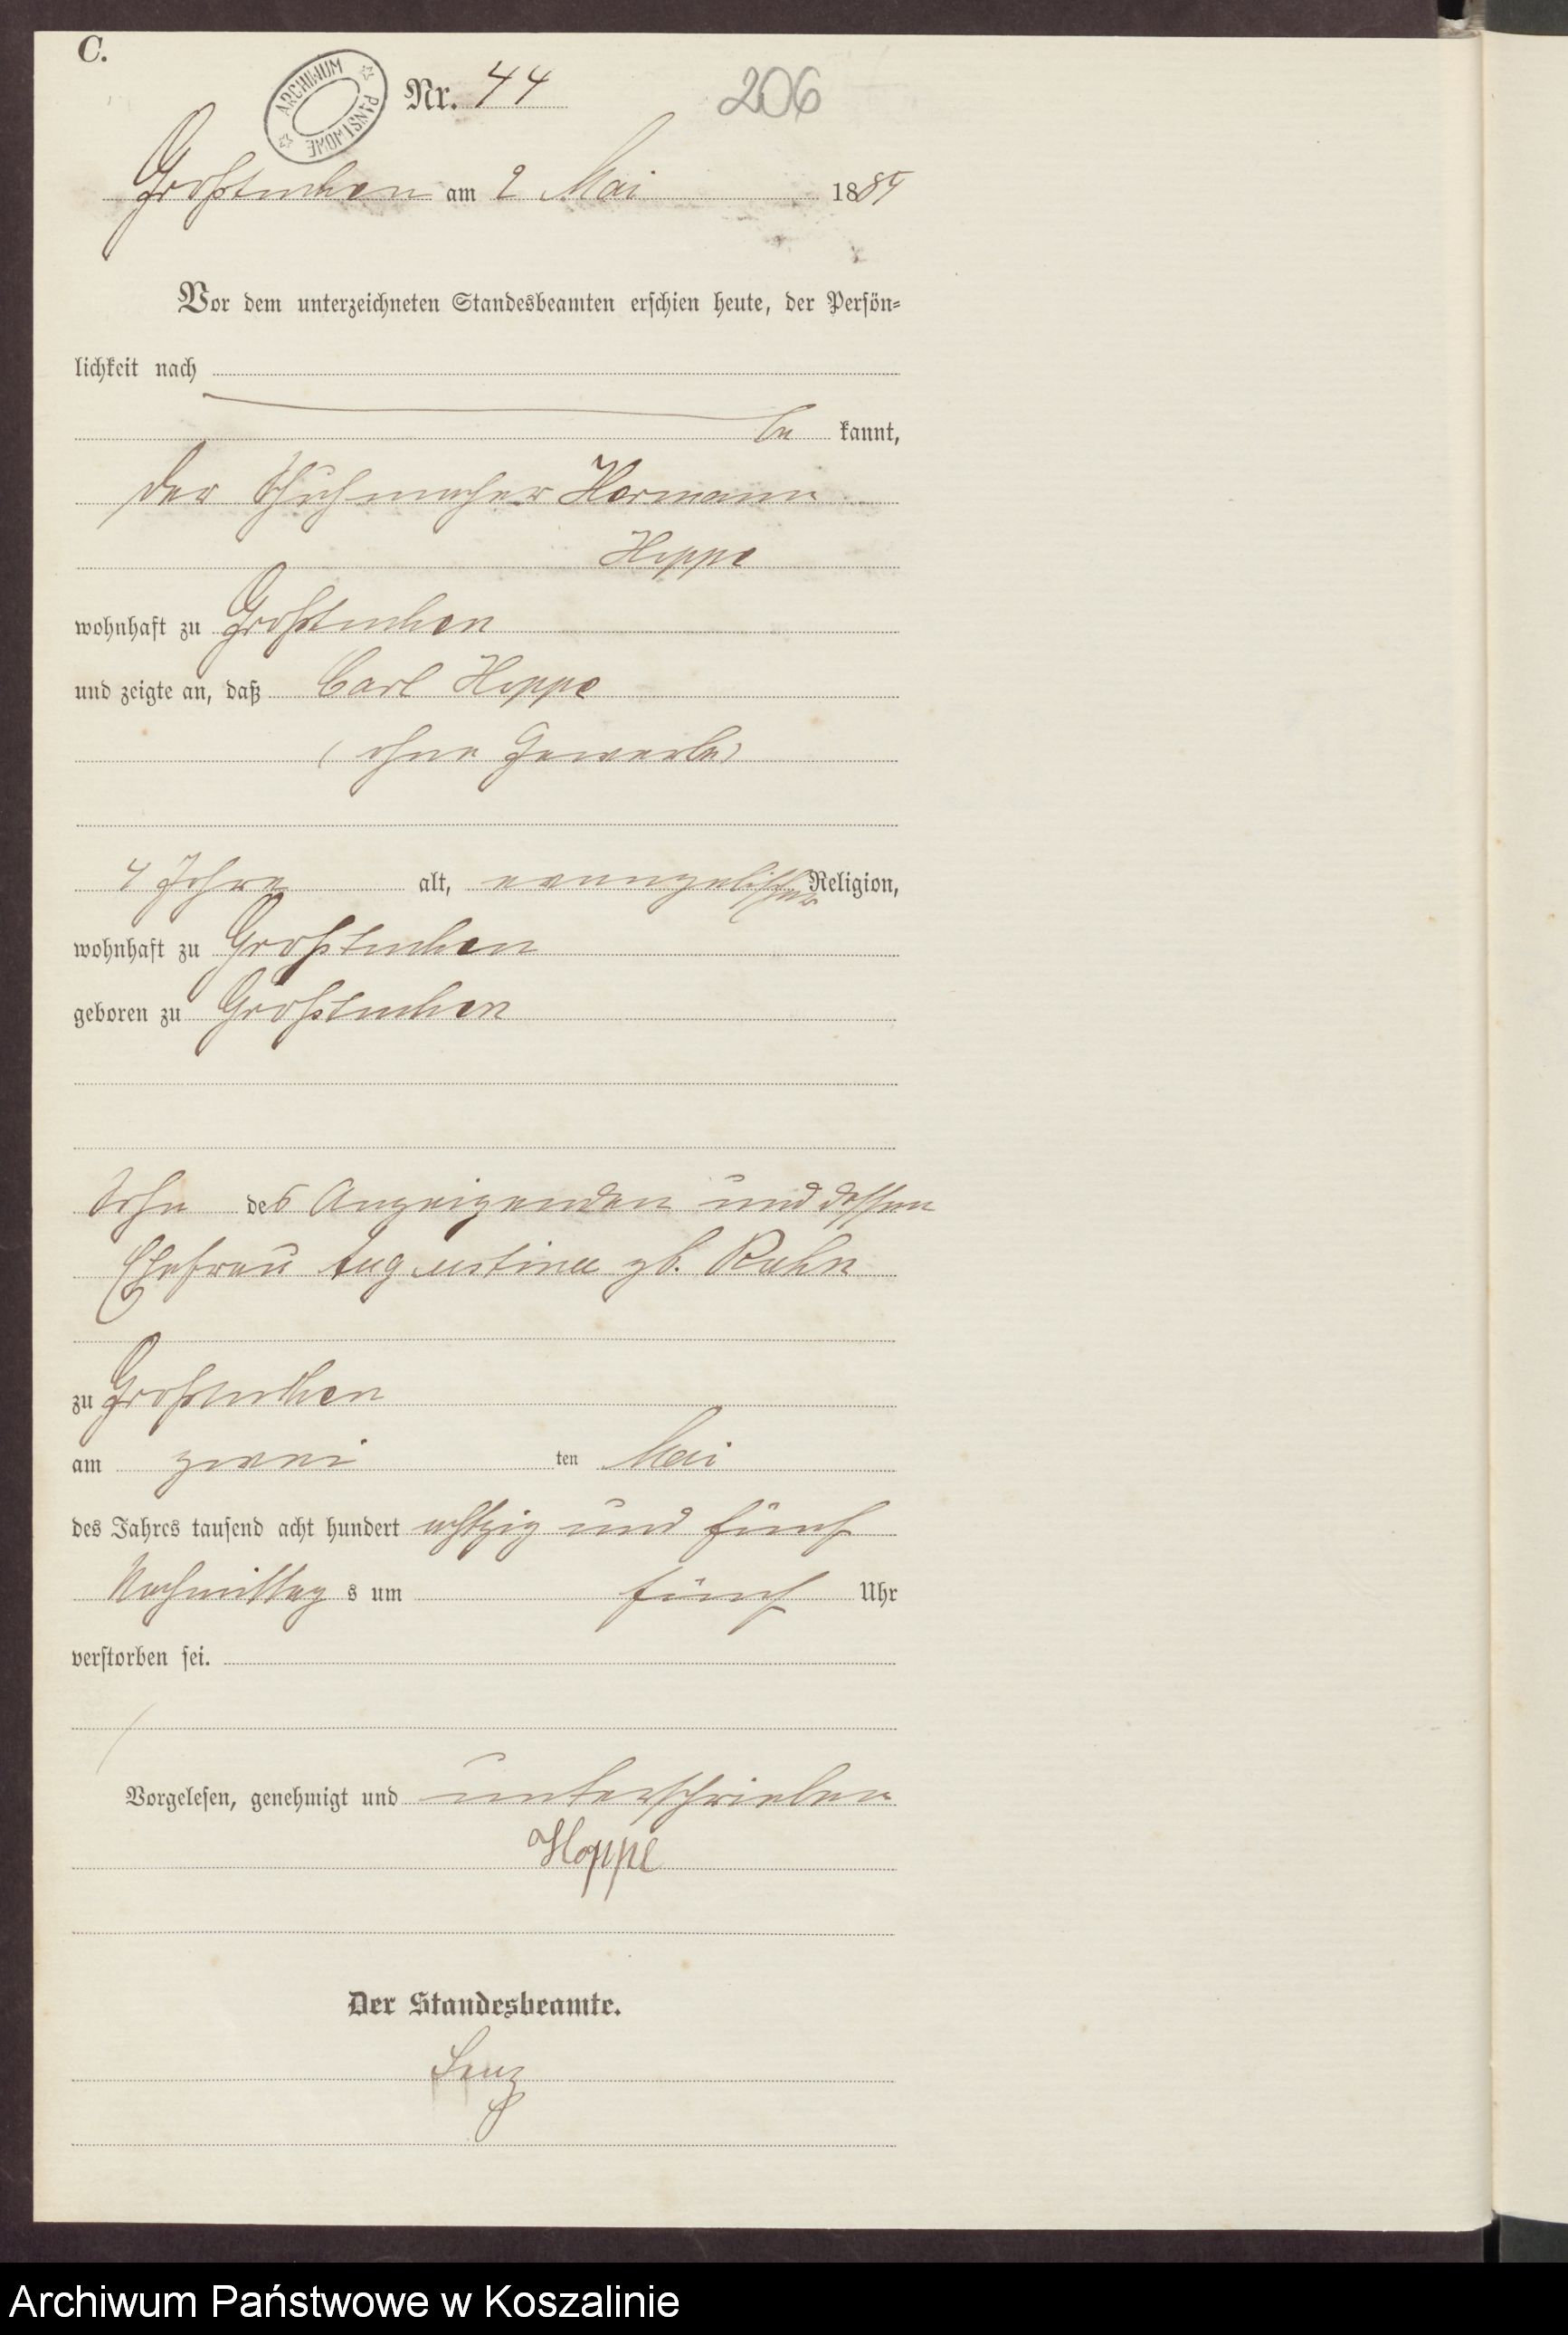 C.
ARCHIWUM PAŃSTWOWE
Nr. 44
206
Großtuchen am 2 Mai 1885
Vor dem unterzeichneten Standesbeamten erschien heute, der Persön-
lichkeit nach
be kannt,
der Schuhmacher Hermann
Hoppe
wohnhaft zu Großtuchen
und zeigte an, daß Carl Hoppe
(ohne Gewerbe)
4 Jahre alt, evangelischer Religion,
wohnhaft zu Großtuchen
geboren zu Großtuchen
Sohn des Anzeigenden und dessen
Ehefrau Augustine gb. Kuhn
zu Großtuchen
am zwei ten Mai
des Jahres tausend acht hundert achtzig und fünf
Nachmittag s um fünf Uhr
verstorben sei.
Vorgelesen, genehmigt und unterschrieben
Hoppe
Der Standesbeamte.
Lenz
Archiwum Państwowe w Koszalinie